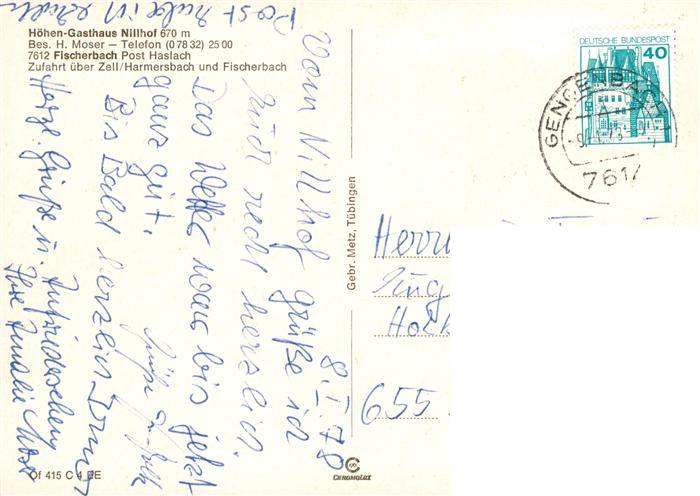 Höhen-Gasthaus Nillhof 670 m
Bes. H. Moser – Telefon (0 78 32) 25 00
7612 Fischerbach Post Haslach
Zufahrt über Zell/Harmersbach und Fischerbach
8.I.78
Vom Nillhof grüße ich
Euch recht herzlich.
Das Wetter war bis jetzt
ganz gut.
Bis Bald herzlich
Grüße
Herzl. Grüße u. Aufwiedersehen
Ihre
Post habe ich
Gebr. Metz, Tübingen
DEUTSCHE BUNDESPOST
40
GENGENBACH
761
Herrn
Jung
655
Of 415 C 4 EE
CHROMOLUX